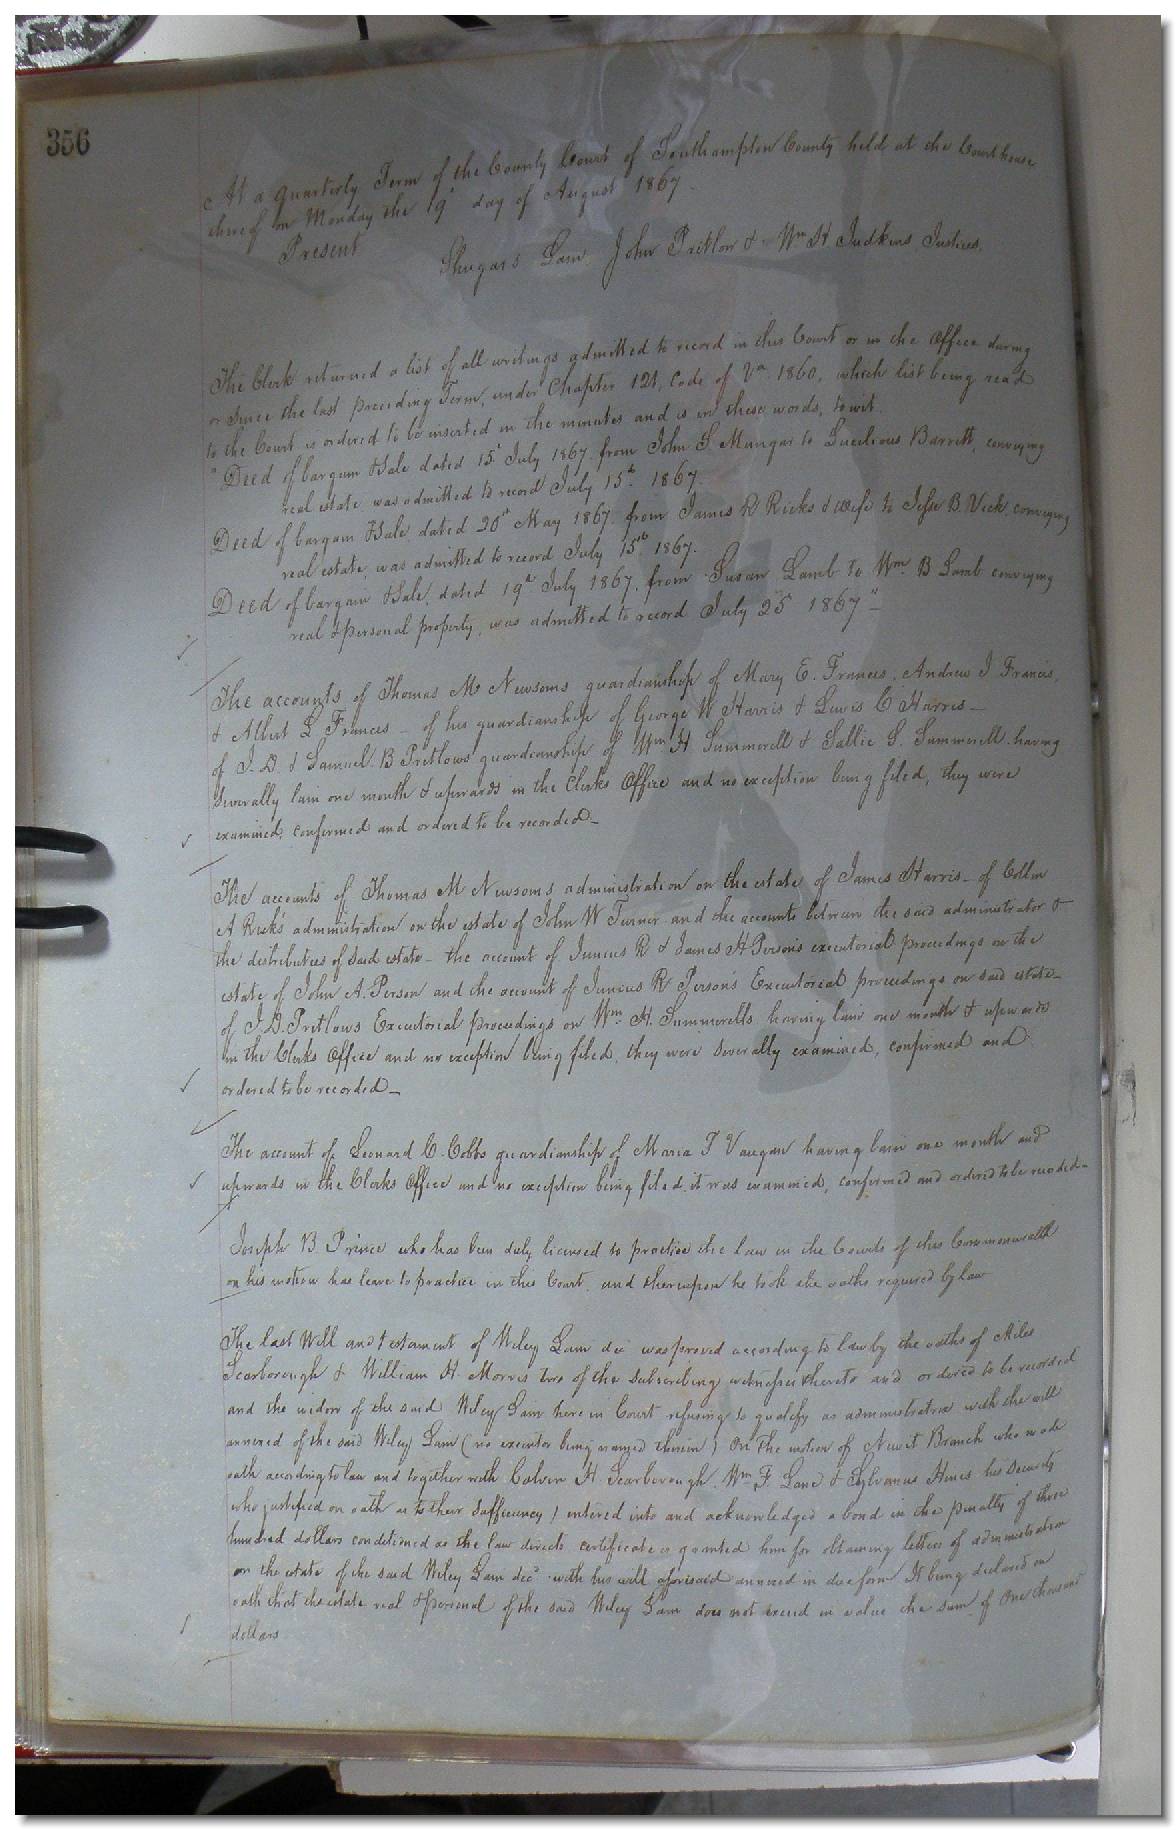 356
At a quarterly Term of the County Court of Southampton County held at the Courthouse
thereof on Monday the 19th day of August 1867.
Present Shugars Lain, John Pretlow & Wm H. Judkins, Justices.
The Clerk returned a list of all writings admitted to record in this Court or in the Office during
or since the last preceding Term, under Chapter 121, Code of Va. 1860, which list being read
to the Court is ordered to be inserted in the minutes and is in these words, to wit.
"Deed of bargain & Sale dated 15 July 1867. from John S. Mungar to Lucilious Barrett, conveying
real estate was admitted to record July 15th 1867.
Deed of bargain & Sale, dated 20th May 1867. from James R Ricks & wife to Jesse B. Vick, conveying
real estate, was admitted to record July 15th 1867.
Deed of bargain & Sale, dated 19th July 1867, from Susan Lamb to Wm. B Lamb conveying
real & personal property, was admitted to record July 25 1867"
The accounts of Thomas M Newsoms guardianship of Mary E. Frances, Andrew J Francis,
& Albert L Frances - of his guardianship of George W Harris & Lewis C Harris -
of J. D. & Samuel B Pretlows guardianship of Wm H Summerell & Sallie S. Summerell having
severally lain one month & upwards in the Clerks Office and no exception being filed, they were
examined, confirmed and ordered to be recorded -
The accounts of Thomas M Newsoms administration on the estate of James Harris - of Collin
A Ricks administration on the estate of John W Turner and the accounts between the said administrator &
the distributees of said estate - the account of Junius R & James H Person's executorial proceedings on the
estate of John A. Person and the account of Junius R Person's Executorial proceedings on said estate -
of J. D. Pretlows Executorial proceedings on Wm H. Summerells having lain one month & upwards
in the Clerks Office and no exception being filed, they were severally examined, confirmed and
ordered to be recorded -
The account of Leonard C. Cobbs guardianship of Maria T Vaugan having lain one month and
upwards in the Clerks Office and no exception being filed, it was examined, confirmed and ordered to be recorded -
Joseph B. Prince who has been duly licensed to practice the law in the Courts of this Commonwealth
on his motion has leave to practice in this Court, and thereupon he took the oaths required by law
The last Will and testament of Wiley Lain dec was proved according to law by the oaths of Miles
Scarborough & William H. Morris two of the subscribing witnesses thereto and ordered to be recorded
and the widow of the said Wiley Lain here in Court refusing to qualify as administratrix with the will
annexed of the said Wiley Lain (no executor being named therein) On the motion of Newit Branch who made
oath according to law and together with Calvin H. Scarborough, Wm F. Lane & Sylvanus Hines his Security
who justified on oath as to their sufficiency) entered into and acknowledged a bond in the penalty of three
hundred dollars conditioned as the law directs certificate is granted him for obtaining letters of administration
on the estate of the said Wiley Lain decd with his will aforesaid annexed in due form It being declared on
oath that the estate real & personal of the said Wiley Lain does not exceed in value the sum of One thousand
dollars